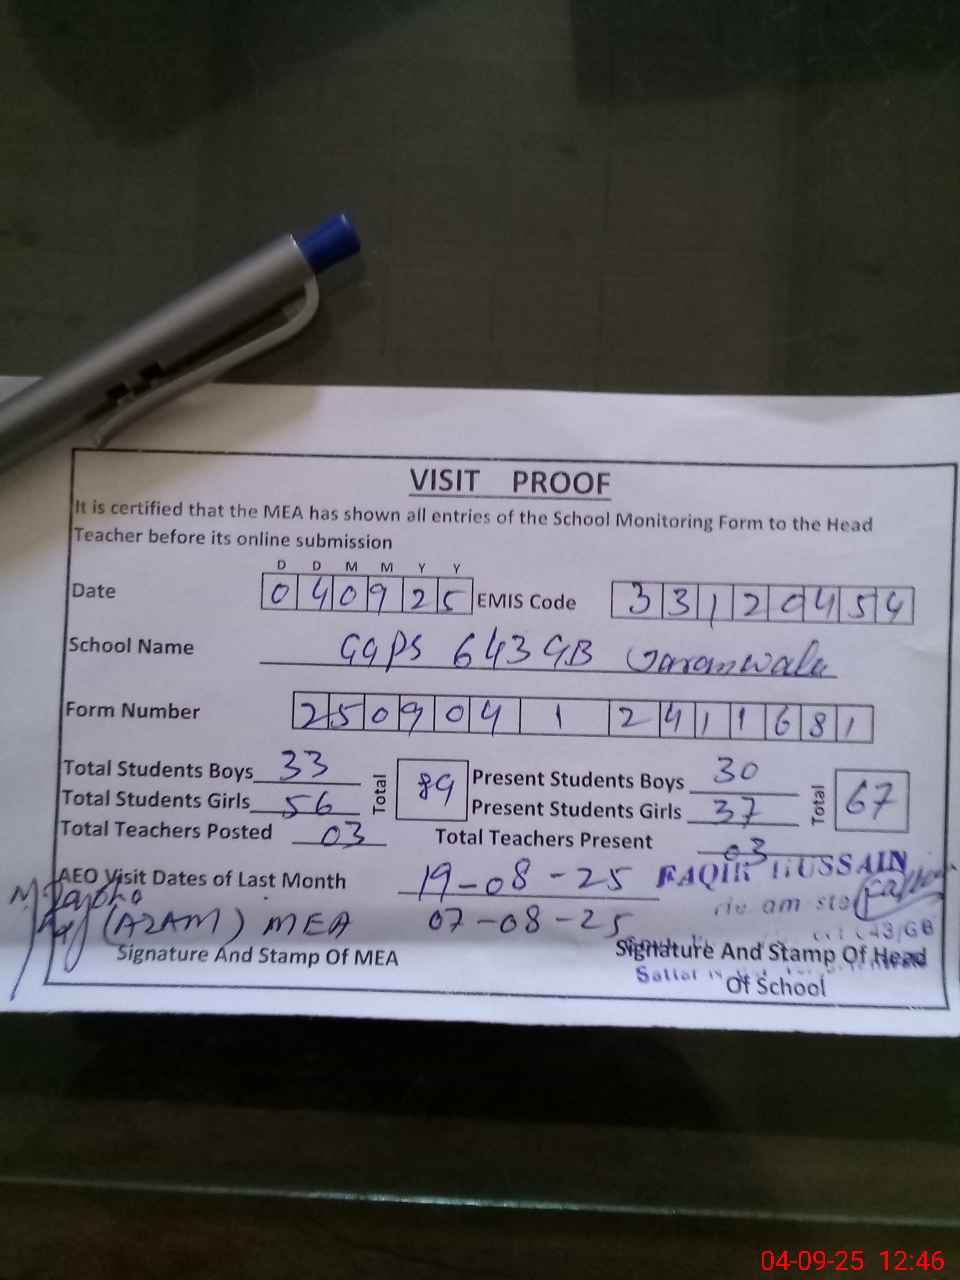 VISIT PROOF
It is certified that the MEA has shown all entries of the School Monitoring Form to the Head
Teacher before its online submission
D D M M Y Y
Date 0 4 0 9 2 5 EMIS Code 3 3 1 2 0 4 5 4
School Name GGPS 643 GB
Form Number 2 5 0 9 0 4 1 2 4 1 1 6 8 1
Total Students Boys 33 Total 89 Present Students Boys 30 Total 67
Total Students Girls 56 Present Students Girls 37
Total Teachers Posted 03 Total Teachers Present 03
AEO Visit Dates of Last Month 19-08-25 FAQIR HUSSAIN
(AZAM) MEA 07-08-25 643/GB
Signature And Stamp Of MEA Signature And Stamp Of Head
Of School
04-09-25 12:46